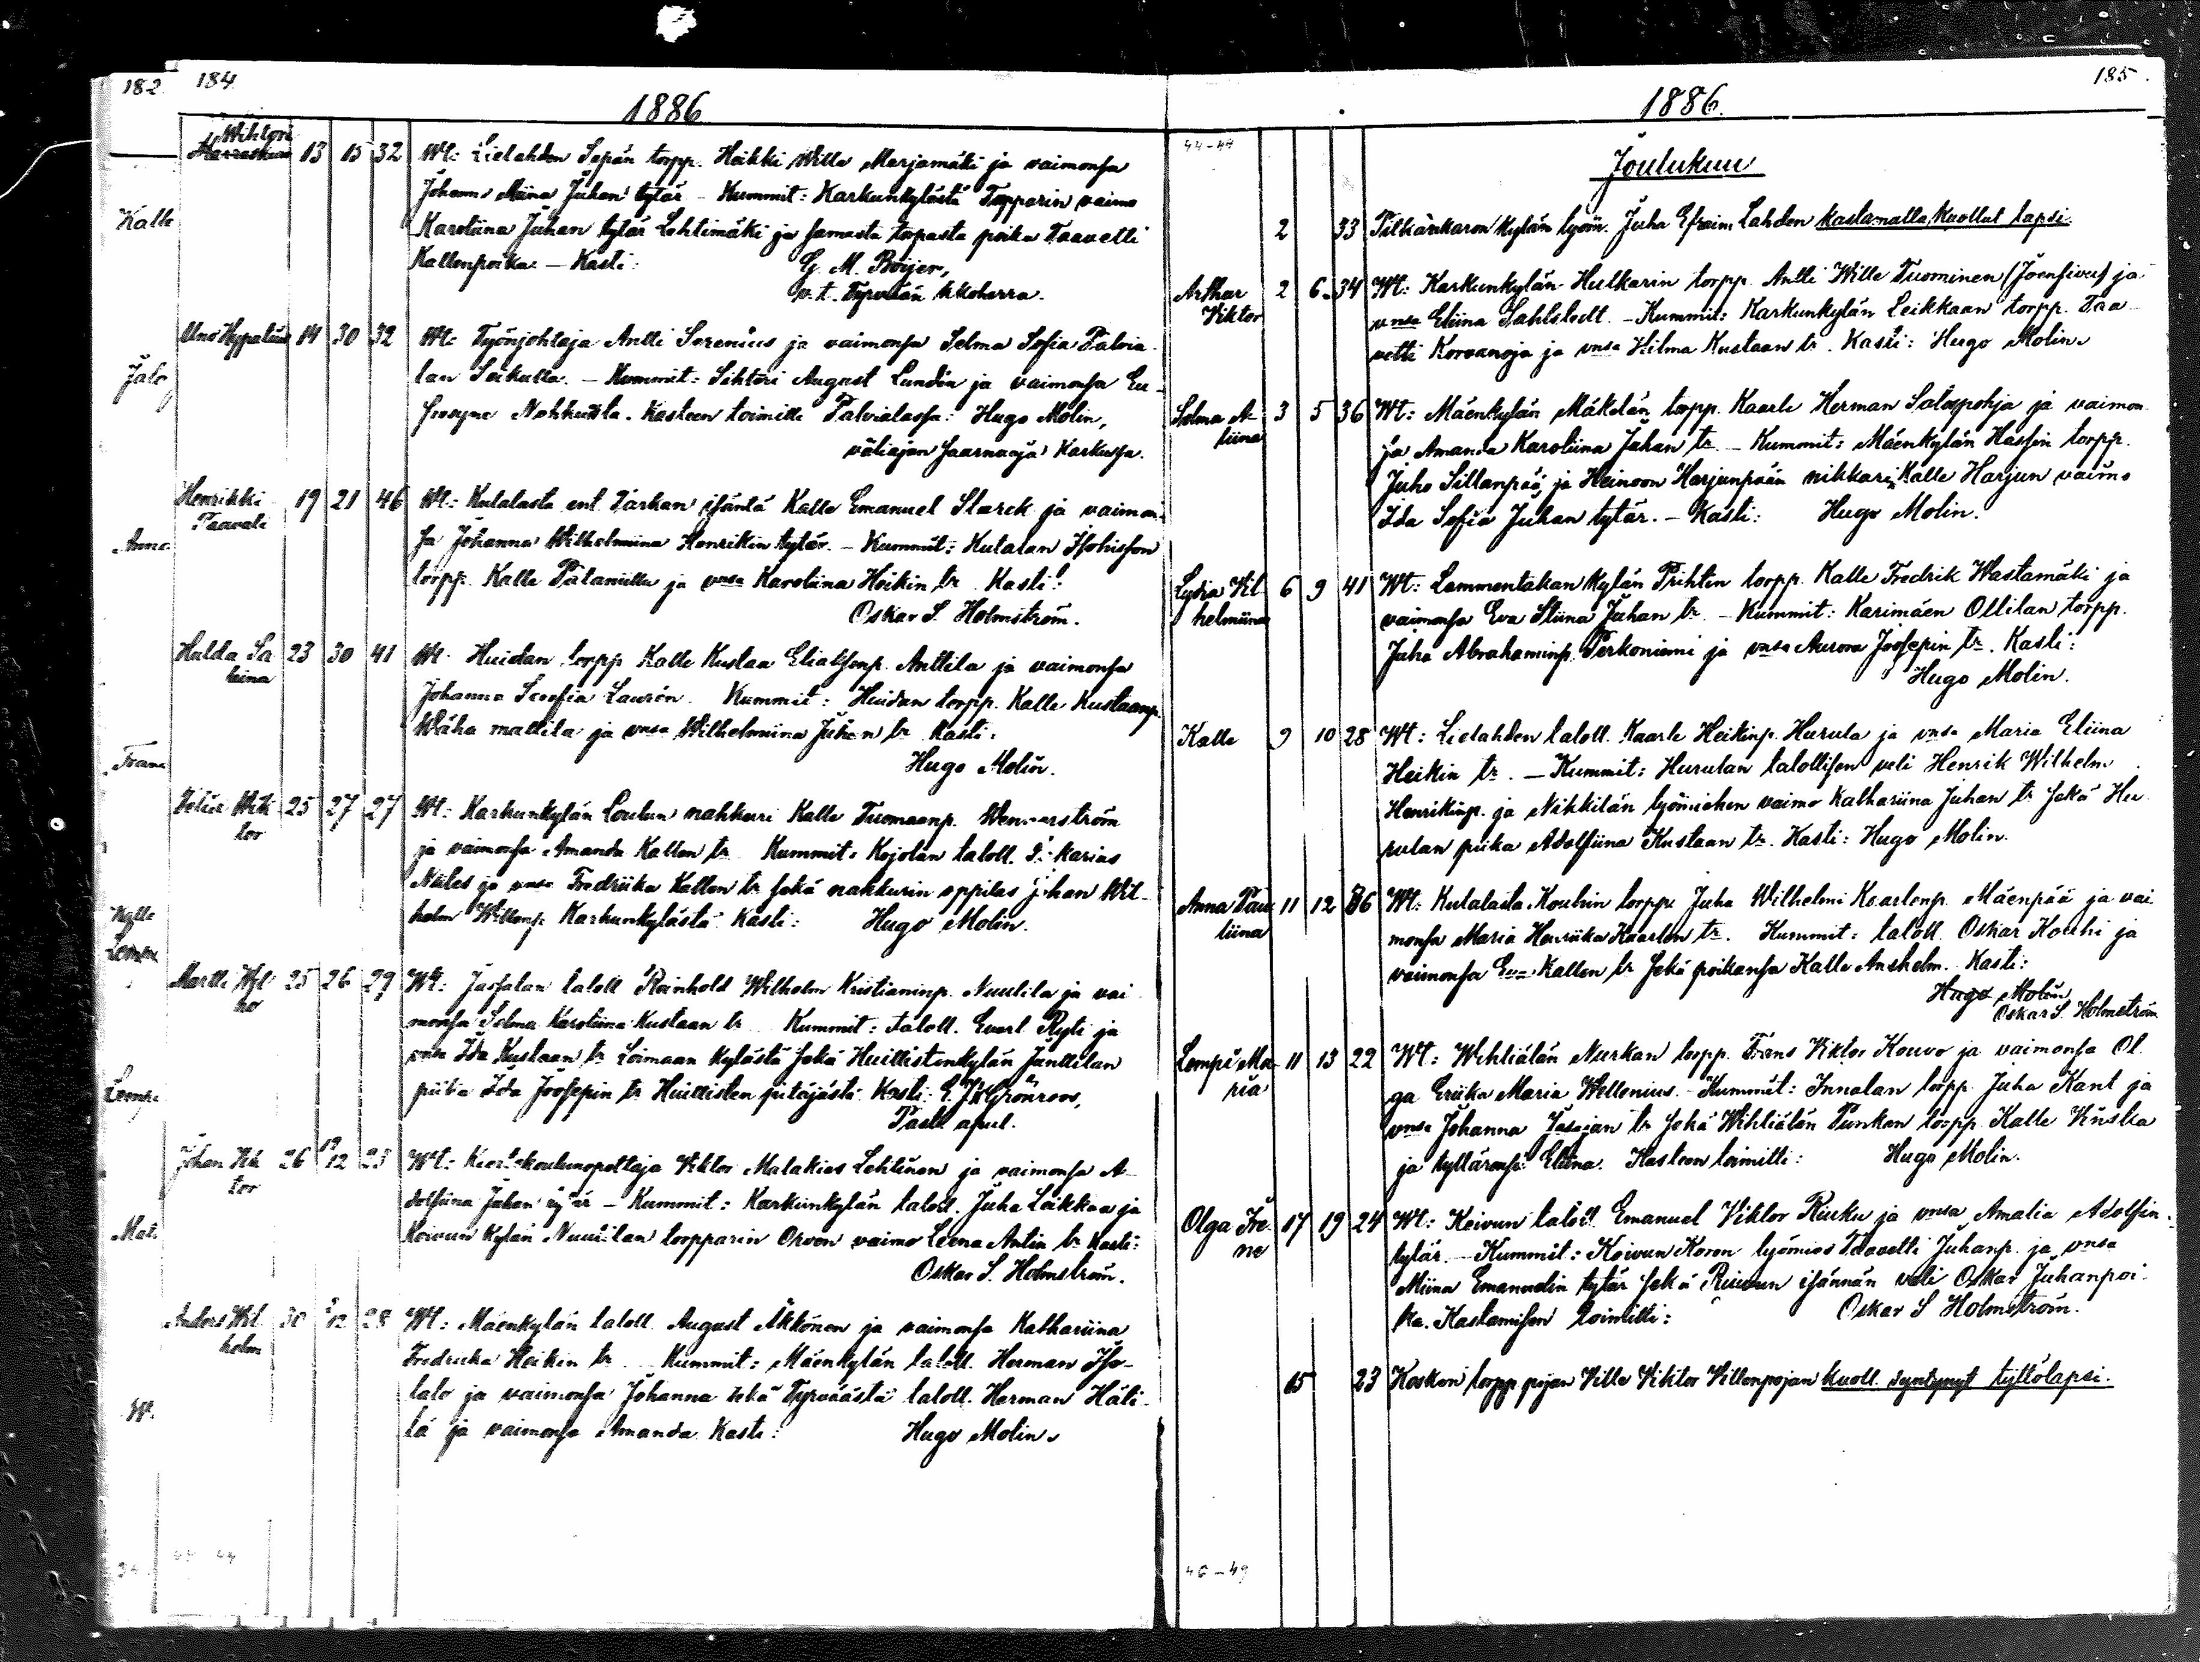 182 184
1886
Wihtori 13 15 32 Wt: Lielahden Sepän torpp. Heikki Wille Marjamäki ja vaimonsa
Johanna Miina Juhan tytär – Kummit: Karkunkylästä Topparin vaimo
Kalle
Karoliina Juhan tytär Lehtimäki ja samasta torpasta poika Taavetti
Kallenpoika. – Kasti: G. M. Boijer,
v. t. Tyrvään kirkkoherra.
Uno 14 30 32 Wt: Työnjohtaja Antti Serenius ja vaimonsa Selma Sofia Talvia
lan Seikulla. – Kummit: Sihtöri August Lundén ja vaimonsa Eu-
frosyne Nohkualla. Kasteen toimitti Talvialassa: Hugo Molin,
väliajan saarnaaja Karkussa.
Henrikki 19 21 46 Wt: Kutalasta ent. Tarkan isäntä Kalle Emanuel Starck ja vaimon-
Taavetti
Anna
sa Johanna Wilhelmiina Henrikin tytär. – Kummit: Kutalan
torpp. Kalle ja vnsa Karoliina Heikin tr. Kasti:
Oskar S. Holmström.
Hulda Sa 23 30 41 Wt. Huidan torpp Kalle Kustaa Eliaksenp. Anttila ja vaimonsa
liina
Johanna Serefia Laurén. Kummit: Huidan torpp. Kalle Kustaanp.
Wähä mattila ja vnsa Wilhelmiina Juhan tr. Kasti.
Frans
Hugo Molin.
Wik 25 27 27 Wt: Karkunkylän Loulun nahkuri Kalle Tuomaanp.
tor
ja vaimonsa Amanda Kallen tr. Kummit: Kojolan taloll.
ja vnsa Fredriika Kallen tr sekä nahkurin oppilas Johan Wil-
helm Willenp. Karkunkylästä. Kasti: Hugo Molin.
Kalle
Martti 25 26 29 Wt: taloll Reinhold Wilhelm Kristianinp. Nuutila ja vai
monsa Selma Karoliina Kustaan tr. Kummit: taloll. Evert Ryti ja
vnsa Ida Kustaan tr Loimaan kylästä sekä Huittistenkylän Junttilan
piika Ida Joosepin tr Huittisten pitäjästä. Kasti: Grönroos,
Past. apul.
Johan Vik 26 12 23 Wt: Viktor Malakias Lehtinen ja vaimonsa A-
tor
dolfiina Juhan tytär – Kummit: Karkunkylän taloll. Juha Leikkaa ja
Koivun kylän torpparin Orvon vaimo Leena Antin tr. Kasti:
Oskar S. Holmström.
Anders Wil 30 12 28 Wt: Mäenkylän taloll. August Äkkönen ja vaimonsa Kathariina
helm
Fredriika Heikin tr. Kummit: Mäenkylän taloll. Herman Iso-
talo ja vaimonsa Johanna sekä Tyrväästä taloll. Herman Häli-
lä ja vaimonsa Amanda. Kasti: Hugo Molin.
185
1886.
Joulukuu
2 33 kylän työm. Juha Efraim Lahden kastamatta kuollut lapsi.
Arthur 2 6 34 Wt: Karkunkylän Hulkarin torpp. Antti Wille Tuominen (Joensivu) ja
Viktor
vnsa Eliina Sahlstedt. – Kummit: Karkunkylän Leikkaan torpp. Taa
vetti Korvanoja ja vnsa Hilma Kustaan tr. Kasti: Hugo Molin.
Selma A- 3 5 36 Wt: Mäenkylän Mäkelän torpp. Kaarle Herman Salospohja ja vaimon
liina
sa Amanda Karoliina Juhan tr. – Kummit: Mäenkylän Hassin torpp.
Juho Sillanpää ja Heinoon Harjunpään nikkarin Kalle Harjun vaimo
Ida Sofia Juhan tytär. – Kasti: Hugo Molin.
Lydia Wil 6 9 41 Wt: Lammentakan kylän Prihtin torpp. Kalle Fredrik Wastamäki ja
helmiina
vaimonsa Eva Stiina Juhan tr. – Kummit: Karimäen Ollilan torpp.
Juha Abrahaminp. Terkoniemi ja vnsa Aurora Joosepin tr. Kasti:
Hugo Molin.
Kalle 9 10 28 Wt: Lielahden taloll. Kaarle Heikinp. Hurula ja vnsa Maria Eliina
Heikin tr. – Kummit: Hurulan talollisen veli Henrik Wilhelm
Henrikinp. ja Nikkilän työmiehen vaimo Kathariina Juhan tr sekä Hu
rulan piika Adolfiina Kustaan tr. Kasti: Hugo Molin.
Anna Pau 11 12 36 Wt: Kutalasta Kouhin torpp. Juha Wilhelmi Kaarlenp. Mäenpää ja vai
liina
monsa Maria Henriika Kaarlen tr. Kummit: taloll. Oskar Kouhi ja
vaimonsa Eva Kallen tr sekä poikansa Kalle Anshelm. Kasti:
Hugo Molin
Oskar S. Holmström
Lempi Ma- 11 13 22 Wt: Wihtiälän Nurkan torpp. Frans Viktor Kouvo ja vaimonsa Ol
ria
ga Eriika Maria Wellenius. – Kummit: Innalan torpp. Juha Kant ja
vnsa Johanna Jesajan tr sekä Wihtiälän Punkan torpp. Kalle
ja tyttärensä Eliina. Kasteen toimitti: Hugo Molin.
Olga Ire- 17 19 24 Wt: Koivun taloll. Emanuel Viktor Riuku ja vnsa Amalia Adolfin
ne
tytär. – Kummit: Koivun Koron työmies Taavetti Juhanp. ja vnsa
Miina Emanuelin tytär sekä Riuvun isännän veli Oskar Juhanpoi-
ka. Kastamisen toimitti: Oskar S Holmström.
15 23 Kosken torpp pojan Ville Viktor Villenpojan kuoll. syntynyt tyttölapsi.
46–49